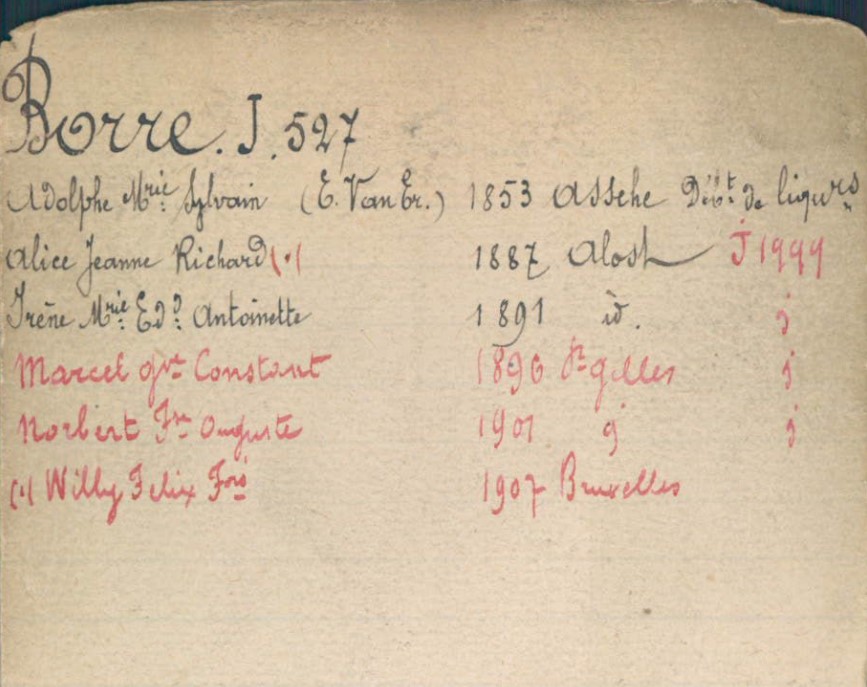 Borre. J. 527
Adolphe Mrie Sylvain (E. Van Er.) 1853 Assche Débt de liqurs
Alice Jeanne Richard (.( 1887 Alost J 1999
Irène Mrie Edd Antoinette 1891 id. j
Marcel Constant 1896 St gilles j
Norbert Frs Auguste 1901 j j
(.( Willy Felix Fois 1907 Bruxelles